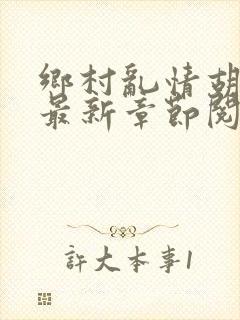 鄉村亂情胡
最新章節閱
許大本事1